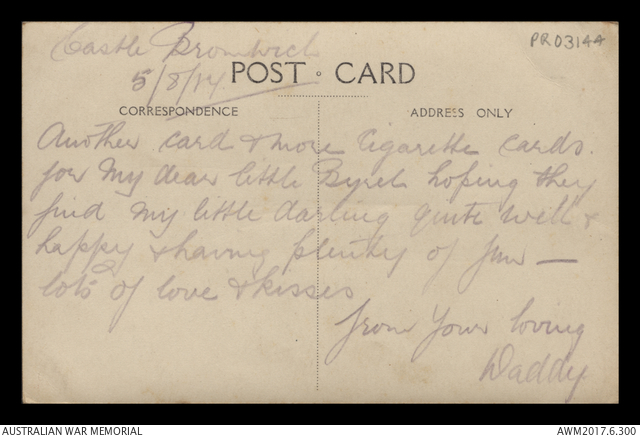 Castle Bromwich
PR03144
5/8/17
POST CARD
CORRESPONDENCE
ADDRESS ONLY
Another card & more Cigarette Cards.
for My dear little Byrel hoping they
find My little darling quite well &
happy & having plenty of fun —
lots of love & kisses
from Your loving
Daddy
AUSTRALIAN WAR MEMORIAL
AWM2017.6.300